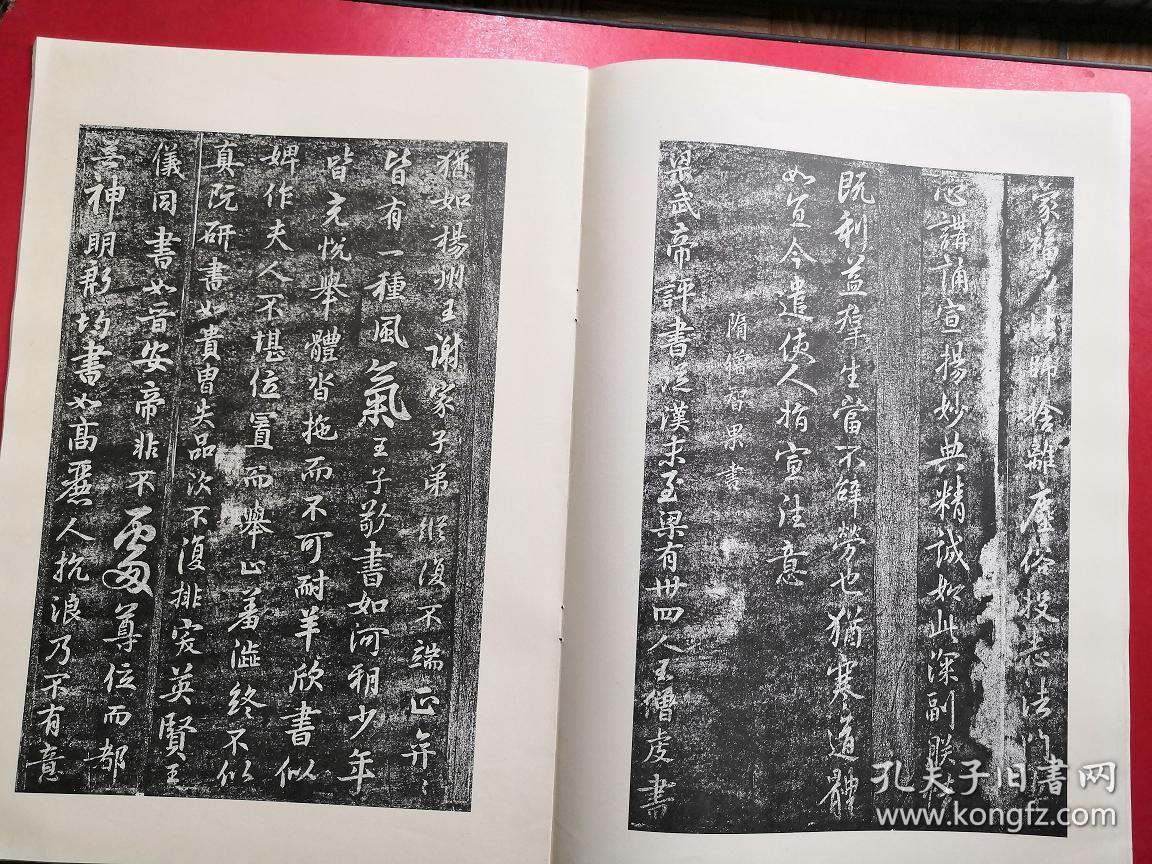 蒙福少小歸捨離塵俗投志法門
心講誦宣揚妙典精誠如此深副朕
既利益羣生當不辞勞也猶寒道體
如宜今遣使人指宣往意
隋僧智果書
梁武帝評書從漢末至梁有卅四人王僧虔書
猶如楊州王謝家子弟縱復不端正弈〻
皆有一種風氣王子敬書如河朔少年
皆充悅舉體沓拖而不可耐羊欣書似
婢作夫人不堪位置而舉止羞澁終不似
真阮研書如貴胄失品次不復排突英賢王
儀同書如晉安帝非不處尊位而都
無神明殷均書如高麗人抗浪乃不有意
孔夫子旧书网
www.kongfz.com